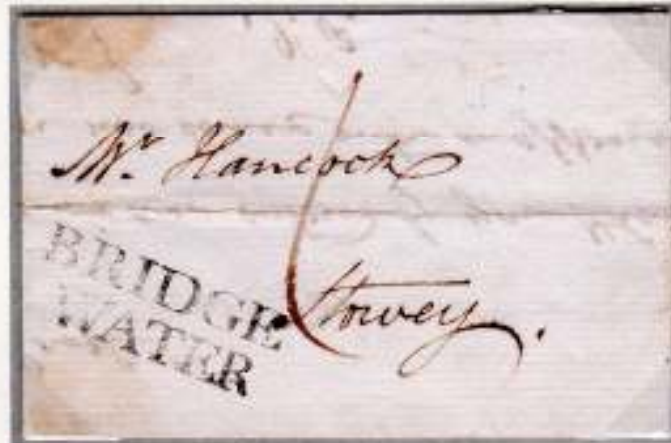 Mr Hancock
Stowey.
BRIDGE
WATER